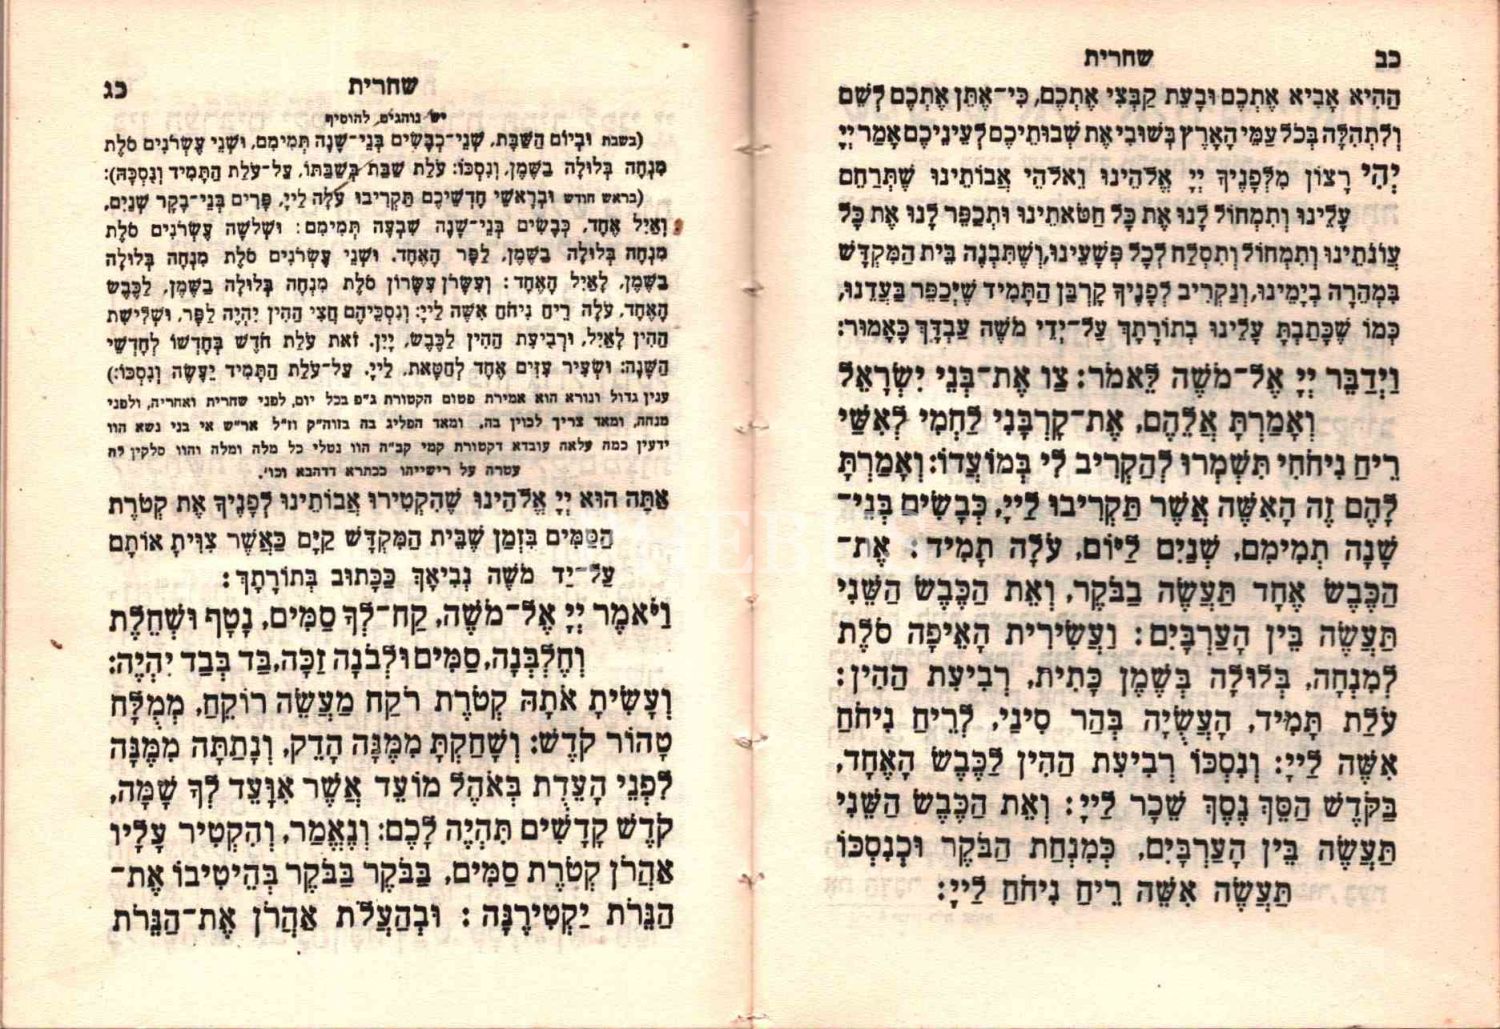 כב
שחרית
הַהִיא אָבִיא אֶתְכֶם וּבָעֵת קַבְּצִי אֶתְכֶם, כִּי־אֶתֵּן אֶתְכֶם לְשֵׁם
וְלִתְהִלָּה בְּכֹל עַמֵּי הָאָרֶץ בְּשׁוּבִי אֶת שְׁבוּתֵיכֶם לְעֵינֵיכֶם אָמַר יְיָ
יְהִי רָצוֹן מִלְּפָנֶיךָ יְיָ אֱלֹהֵינוּ וֵאלֹהֵי אֲבוֹתֵינוּ שֶׁתְּרַחֵם
עָלֵינוּ וְתִמְחוֹל לָנוּ אֶת כָּל חַטֹּאתֵינוּ וּתְכַפֵּר לָנוּ אֶת כָּל
עֲוֹנֹתֵינוּ וְתִמְחוֹל וְתִסְלַח לְכָל פְּשָׁעֵינוּ, וְשֶׁתִּבְנֶה בֵּית הַמִּקְדָּשׁ
בִּמְהֵרָה בְיָמֵינוּ, וְנַקְרִיב לְפָנֶיךָ קָרְבַּן הַתָּמִיד שֶׁיְּכַפֵּר בַּעֲדֵנוּ,
כְּמוֹ שֶׁכָּתַבְתָּ עָלֵינוּ בְתוֹרָתֶךָ עַל־יְדֵי מֹשֶׁה עַבְדֶּךָ כָּאָמוּר:
וַיְדַבֵּר יְיָ אֶל־מֹשֶׁה לֵּאמֹר: צַו אֶת־בְּנֵי יִשְׂרָאֵל
וְאָמַרְתָּ אֲלֵהֶם, אֶת־קָרְבָּנִי לַחְמִי לְאִשַּׁי
רֵיחַ נִיחֹחִי תִּשְׁמְרוּ לְהַקְרִיב לִי בְּמוֹעֲדוֹ: וְאָמַרְתָּ
לָהֶם זֶה הָאִשֶּׁה אֲשֶׁר תַּקְרִיבוּ לַיְיָ, כְּבָשִׂים בְּנֵי־
שָׁנָה תְמִימִם, שְׁנַיִם לַיּוֹם, עֹלָה תָמִיד: אֶת־
הַכֶּבֶשׂ אֶחָד תַּעֲשֶׂה בַבֹּקֶר, וְאֵת הַכֶּבֶשׂ הַשֵּׁנִי
תַּעֲשֶׂה בֵּין הָעַרְבָּיִם: וַעֲשִׂירִית הָאֵיפָה סֹלֶת
לְמִנְחָה, בְּלוּלָה בְּשֶׁמֶן כָּתִית, רְבִיעִת הַהִין:
עֹלַת תָּמִיד, הָעֲשֻׂיָה בְּהַר סִינַי, לְרֵיחַ נִיחֹחַ
אִשֶּׁה לַיְיָ: וְנִסְכּוֹ רְבִיעִת הַהִין לַכֶּבֶשׂ הָאֶחָד,
בַּקֹּדֶשׁ הַסֵּךְ נֶסֶךְ שֵׁכָר לַיְיָ: וְאֵת הַכֶּבֶשׂ הַשֵּׁנִי
תַּעֲשֶׂה בֵּין הָעַרְבָּיִם, כְּמִנְחַת הַבֹּקֶר וּכְנִסְכּוֹ
תַּעֲשֶׂה אִשֵּׁה רֵיחַ נִיחֹחַ לַיְיָ:
שחרית
כג
יש נוהגים, להוסיף
(בשבת וּבְיוֹם הַשַּׁבָּת, שְׁנֵי־כְבָשִׂים בְּנֵי־שָׁנָה תְּמִימִם, וּשְׁנֵי עֶשְׂרֹנִים סֹלֶת
מִנְחָה בְּלוּלָה בַשֶּׁמֶן, וְנִסְכּוֹ: עֹלַת שַׁבַּת בְּשַׁבַּתּוֹ, עַל־עֹלַת הַתָּמִיד וְנִסְכָּהּ):
(בראש חודש וּבְרָאשֵׁי חָדְשֵׁיכֶם תַּקְרִיבוּ עֹלָה לַיְיָ, פָּרִים בְּנֵי־בָקָר שְׁנַיִם,
וְאַיִל אֶחָד, כְּבָשִׂים בְּנֵי־שָׁנָה שִׁבְעָה תְּמִימִם: וּשְׁלֹשָׁה עֶשְׂרֹנִים סֹלֶת
מִנְחָה בְּלוּלָה בַשֶּׁמֶן, לַפָּר הָאֶחָד, וּשְׁנֵי עֶשְׂרֹנִים סֹלֶת מִנְחָה בְּלוּלָה
בַשֶּׁמֶן, לָאַיִל הָאֶחָד: וְעִשָּׂרֹן עִשָּׂרוֹן סֹלֶת מִנְחָה בְּלוּלָה בַשֶּׁמֶן, לַכֶּבֶשׂ
הָאֶחָד, עֹלָה רֵיחַ נִיחֹחַ אִשֶּׁה לַיְיָ: וְנִסְכֵּיהֶם חֲצִי הַהִין יִהְיֶה לַפָּר, וּשְׁלִישִׁת
הַהִין לָאַיִל, וּרְבִיעִת הַהִין לַכֶּבֶשׂ, יָיִן, זֹאת עֹלַת חֹדֶשׁ בְּחָדְשׁוֹ לְחָדְשֵׁי
הַשָּׁנָה: וּשְׂעִיר עִזִּים אֶחָד לְחַטָּאת, לַיְיָ, עַל־עֹלַת הַתָּמִיד יֵעָשֶׂה וְנִסְכּוֹ:)
ענין גדול ונורא הוא אמירת פטום הקטורת ג"פ בכל יום, לפני שחרית ואחריה, ולפני
מנחה, ומאד צריך לכוין בה, ומאד הפליג בה בזוה"ק וז"ל אר"ש אי בני נשא הוו
ידעין כמה עלאה עובדא דקטורת קמי קב"ה הוו נטלי כל מלה ומלה והוו סלקין לה
עטרה על רישייהו ככתרא דדהבא וכו'.
אַתָּה הוּא יְיָ אֱלֹהֵינוּ שֶׁהִקְטִירוּ אֲבוֹתֵינוּ לְפָנֶיךָ אֶת קְטֹרֶת
הַסַּמִּים בִּזְמַן שֶׁבֵּית הַמִּקְדָּשׁ קַיָּם כַּאֲשֶׁר צִוִּיתָ אוֹתָם
עַל־יַד מֹשֶׁה נְבִיאֶךָ כַּכָּתוּב בְּתוֹרָתֶךָ:
וַיֹּאמֶר יְיָ אֶל־מֹשֶׁה, קַח־לְךָ סַמִּים, נָטָף וּשְׁחֵלֶת
וְחֶלְבְּנָה, סַמִּים וּלְבֹנָה זַכָּה, בַּד בְּבַד יִהְיֶה:
וְעָשִׂיתָ אֹתָהּ קְטֹרֶת רֹקַח מַעֲשֵׂה רוֹקֵחַ, מְמֻלָּח
טָהוֹר קֹדֶשׁ: וְשָׁחַקְתָּ מִמֶּנָּה הָדֵק, וְנָתַתָּה מִמֶּנָּה
לִפְנֵי הָעֵדֻת בְּאֹהֶל מוֹעֵד אֲשֶׁר אִוָּעֵד לְךָ שָׁמָּה,
קֹדֶשׁ קָדָשִׁים תִּהְיֶה לָכֶם: וְנֶאֱמַר, וְהִקְטִיר עָלָיו
אַהֲרֹן קְטֹרֶת סַמִּים, בַּבֹּקֶר בַּבֹּקֶר בְּהֵיטִיבוֹ אֶת־
הַנֵּרֹת יַקְטִירֶנָּה: וּבְהַעֲלֹת אַהֲרֹן אֶת־הַנֵּרֹת